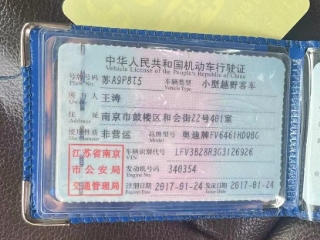 中华人民共和国机动车行驶证
Vehicle License of the People's Republic of China
号牌号码 苏A9P8T5 车辆类型 小型越野客车
Plate No. Vehicle Type
所有人 王涛
Owner
住址 南京市鼓楼区和会街22号401室
Address
使用性质 非营运 品牌型号 奥迪牌FV6461HDQBG
Use Character Model
江苏省南京市公安局交通管理局
车辆识别代号 LFV3B28R3G3126926
VIN
发动机号码 340354
Engine No.
注册日期 2017-01-24 发证日期 2017-01-24
Register Date Issue Date